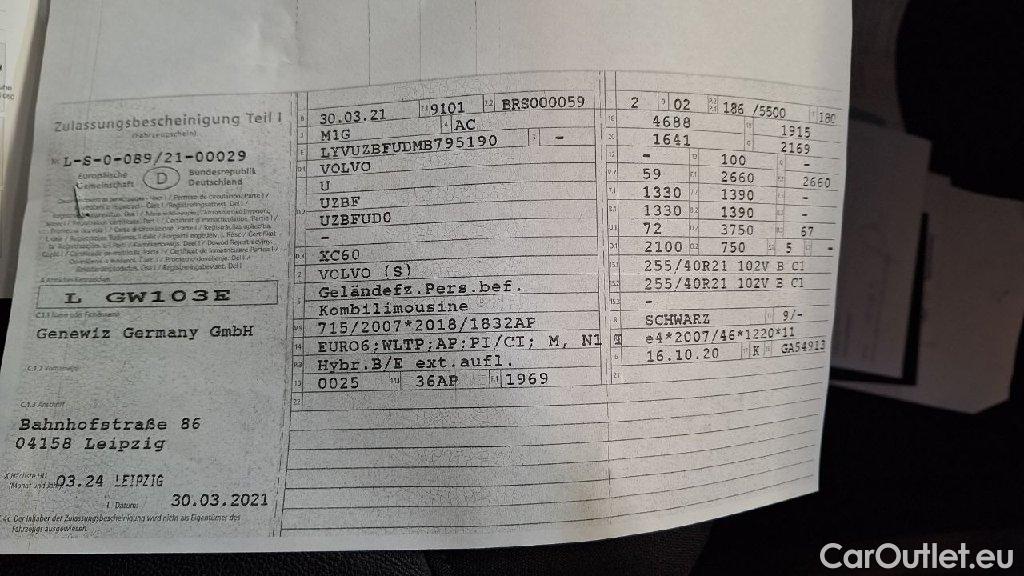 Zulassungsbescheinigung Teil I
(Fahrzeugschein)
Nr. L-S-0-089/21-00029
Europäische Gemeinschaft D Bundesrepublik Deutschland
L GW103E
Genewiz Germany GmbH
Bahnhofstraße 86
04158 Leipzig
03.24 LEIPZIG
Datum: 30.03.2021
C.4c. Der Inhaber der Zulassungsbescheinigung wird nicht als Eigentümer des Fahrzeugs ausgewiesen.
30.03.21 9101 BRS000059
M1G AC
LYVUZBFUDMB795190 -
VOLVO
U
UZBF
UZBFUD0
-
XC60
VOLVO (S)
Geländefz.Pers.bef.
Kombilimousine
715/2007*2018/1832AP
EURO6;WLTP;AP;PI/CI; M, N1 I
Hybr.B/E ext.aufl.
0025 36AP 1969
22
2 02 186 /5500 180
4688 1915
1641 2169
- 100 -
59 2660 2660
1330 1390 -
1330 1390 -
72 3750 67
2100 750 5 -
255/40R21 102V B C1
255/40R21 102V B C1
-
SCHWARZ 9/-
e4*2007/46*1220*11
16.10.20 K GA54913
21
CarOutlet.eu